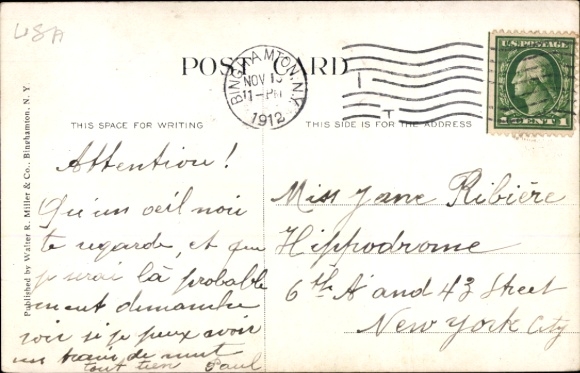 USA
POST CARD
BINGHAMTON, N.Y.
NOV 1
11-PM
1912
U.S. POSTAGE
1 CENT 1
THIS SPACE FOR WRITING
THIS SIDE IS FOR THE ADDRESS
Published by Walter R. Miller & Co., Binghamton, N. Y.
Attention!
Qu'un oeil noir
te regarde, et que
je serai là probable
ment dimanche
soir si je peux avoir
un train de nuit
tout tien Paul
Miss Jane Ribière
Hippodrome
6th A and 43 Street
New York City